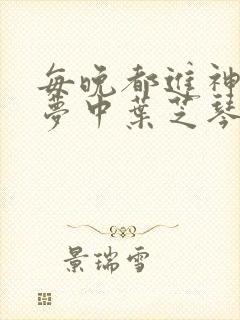 每晚都進神
夢中葉芝琴
景瑞雪